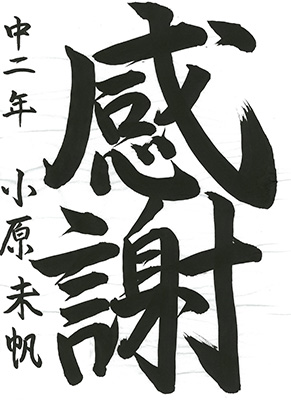 感謝
中二年 小原未帆